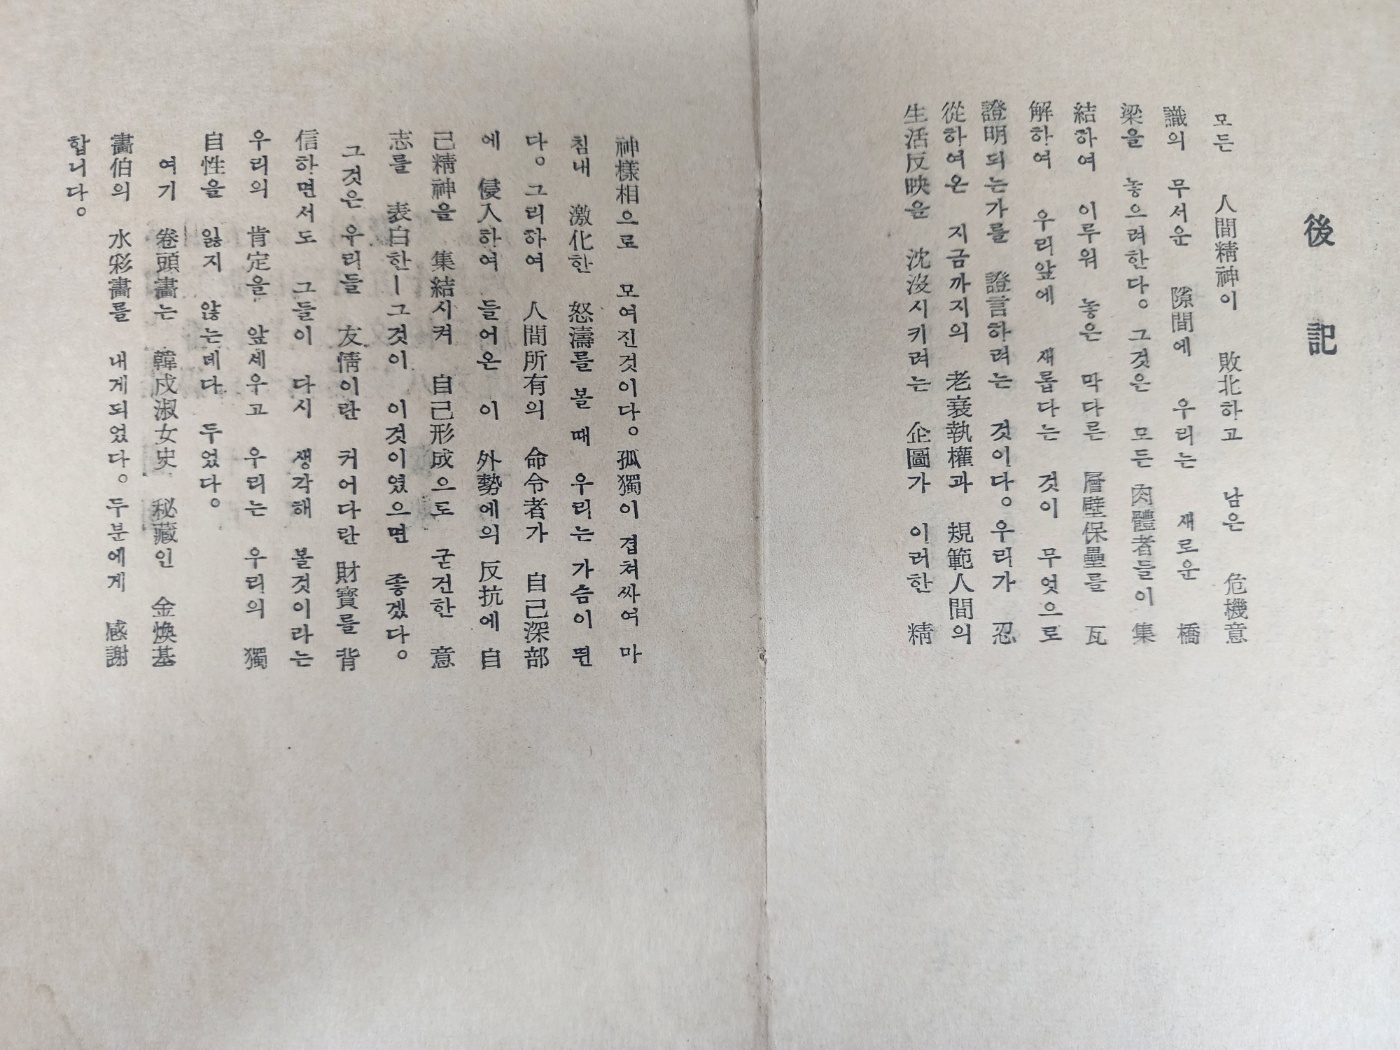 後記
모든 人間精神이 敗北하고 남은 危機意
識의 무서운 隙間에 우리는 새로운 橋
梁을 놓으려한다。그것은 모든 肉體者들이 集
結하여 이루워 놓은 막다른 層壁保壘를 瓦
解하여 우리앞에 새롭다는 것이 무엇으로
證明되는가를 證言하려는 것이다。우리가 忍
從하여온 지금까지의 老衰執權과 規範人間의
生活反映을 沈沒시키려는 企圖가 이러한 精
神樣相으로 모여진것이다。孤獨이 겹쳐싸여 마
침내 激化한 怒濤를 볼 때 우리는 가슴이 뛴
다。그리하여 人間所有의 命令者가 自己深部
에 侵入하여 들어온 이 外勢에의 反抗에 自
己精神을 集結시켜 自己形成으로 굳건한 意
志를 表白한―그것이 이것이였으면 좋겠다。
그것은 우리들 友情이란 커어다란 財寶를 背
信하면서도 그들이 다시 생각해 볼것이라는
우리의 肯定을 앞세우고 우리는 우리의 獨
自性을 잃지 않는데다 두었다。
여기 卷頭畵는 韓戍淑女史 秘藏인 金煥基
畵伯의 水彩畵를 내게되었다。두분에게 感謝
합니다。